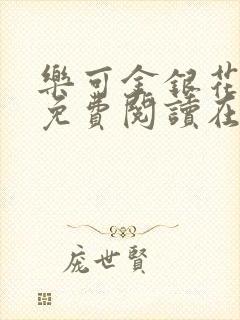 樂可金銀花
免費閱讀在
龐世賢